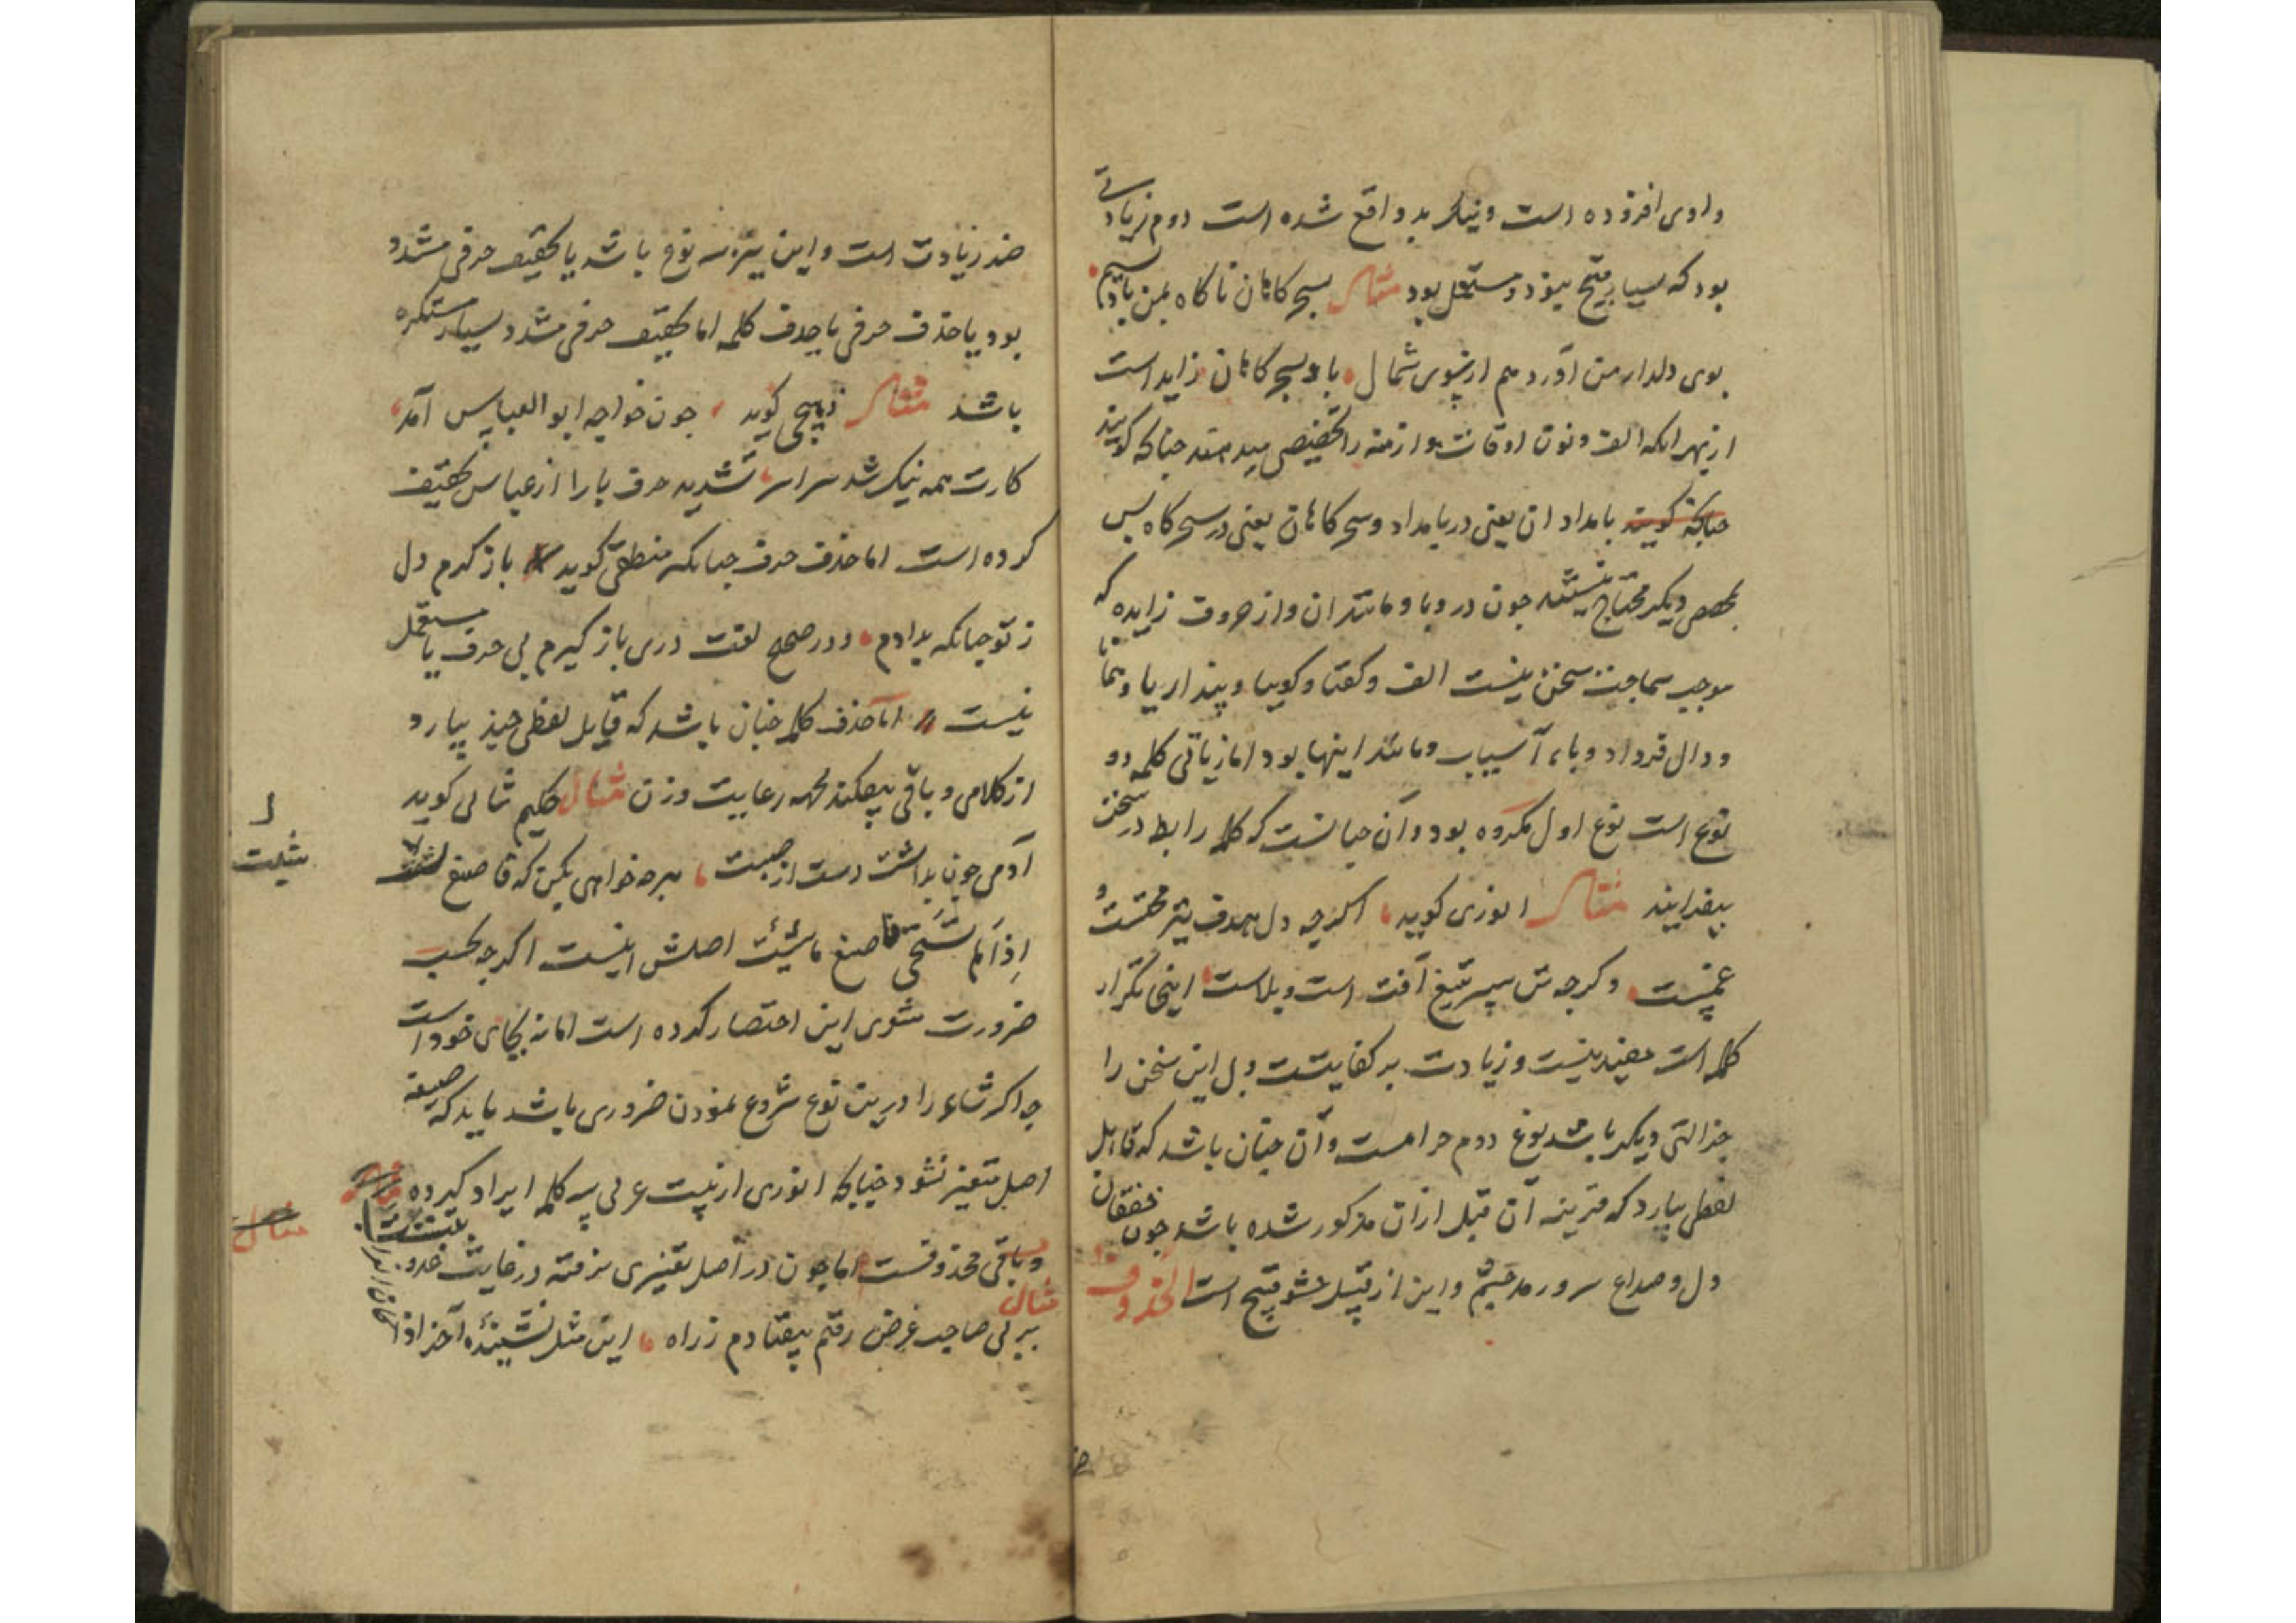 واوی افزوده است و نیک بد واقع شده است دوم زیادتی
بود که بسیار قبیح بود و مستعمل بود مثال بسحرکاهان ناکاه بمن باد نسیم
بوی دلدار من آورد هم از سوی شمال باء بسحرکاهان زاید است
از بهر آنکه الف و نون اوقات و ازمنه را تخصیص میدهند چنانکه کویند
چنانکه کویند بامدادان یعنی در بامداد و سحرکاهان یعنی در سحرکاه پس
بمخصص دیکر محتاج نیستند چون در و با و مانند آن و از حروف زایده که
موجب سماجت سخن نیست الف و کفتا و کوییا و پنداریا و همانا
و دال فرداد و باء آسیاب و مانند اینها بود اما زیاتی کلمه دو
نوع است نوع اول مکروه بود و آن چنانست که کلمه را بط در سخن
بیفزایند مثال انوری کوید اکرچه دل هدف تیر محنت و
غمست وکرچه تن سپر تیغ آفت است و بلاست اینجا تکرار
کلمه است مفید نیست و زیادت بر کفایتست و بل این سخن را
جزالتی دیکر باشد نوع دوم حرامست و آن چنان باشد که قایل
لفظی بیارد که قرینه آن قبل از آن مذکور شده باشد چون خفقان
دل و صداع سر و رمد چشم و این از قبیل حشو قبیح است المحذوف
ضد زیادت است و این نیز بر سه نوع باشد یا تخفیف حرفی مشدد
بود یا حذف حرفی یا حذف کلمه اما تخفیف حرفی مشدد بسیار مستکره
باشد مثال ذبیحی کوید چون خواجه ابو العباس آمد
کارت همه نیک شد سراسر تشدید حرف با را از عباس تخفیف
کرده است اما حذف حرف چنانکه منطقی کوید باز کرم دل
ز تو چنانکه بدادم و در صحیح لغت دری باز کیرم بی حرف یا مستعمل
نیست اما حذف کلمه چنان باشد که قایل لفظی چند بیارد
از کلامی و باقی بیفکند بجهه رعایت وزن مثال حکیم ثنائی کوید
آدمی چون بداشت دست از صیت هرچه خواهی بکن که فاصنع شئت
إذا لم تستحی فاصنع ما شئت اصلش اینست اکرچه بحسب
ضرورت مثنوی این اختصار کرده است اما نه بجای خود است
چه اکر شاعر را درین نوع شروع نمودن ضروری باشد باید که صیغه
اصل متغیر نشود چنانکه انوری از بیت عربی سه کلمه ایراد کرده
و باقی محذوفست اما چون در اصل تغییری نرفته در غایت
مثال
بیر لی صاحب غرض رفتم بیفتادم ز راه این مثل نشنیده آخر اذا
شیئت
مثال